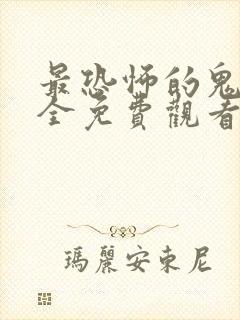 最恐怖的鬼
全免費觀看
瑪麗安東尼